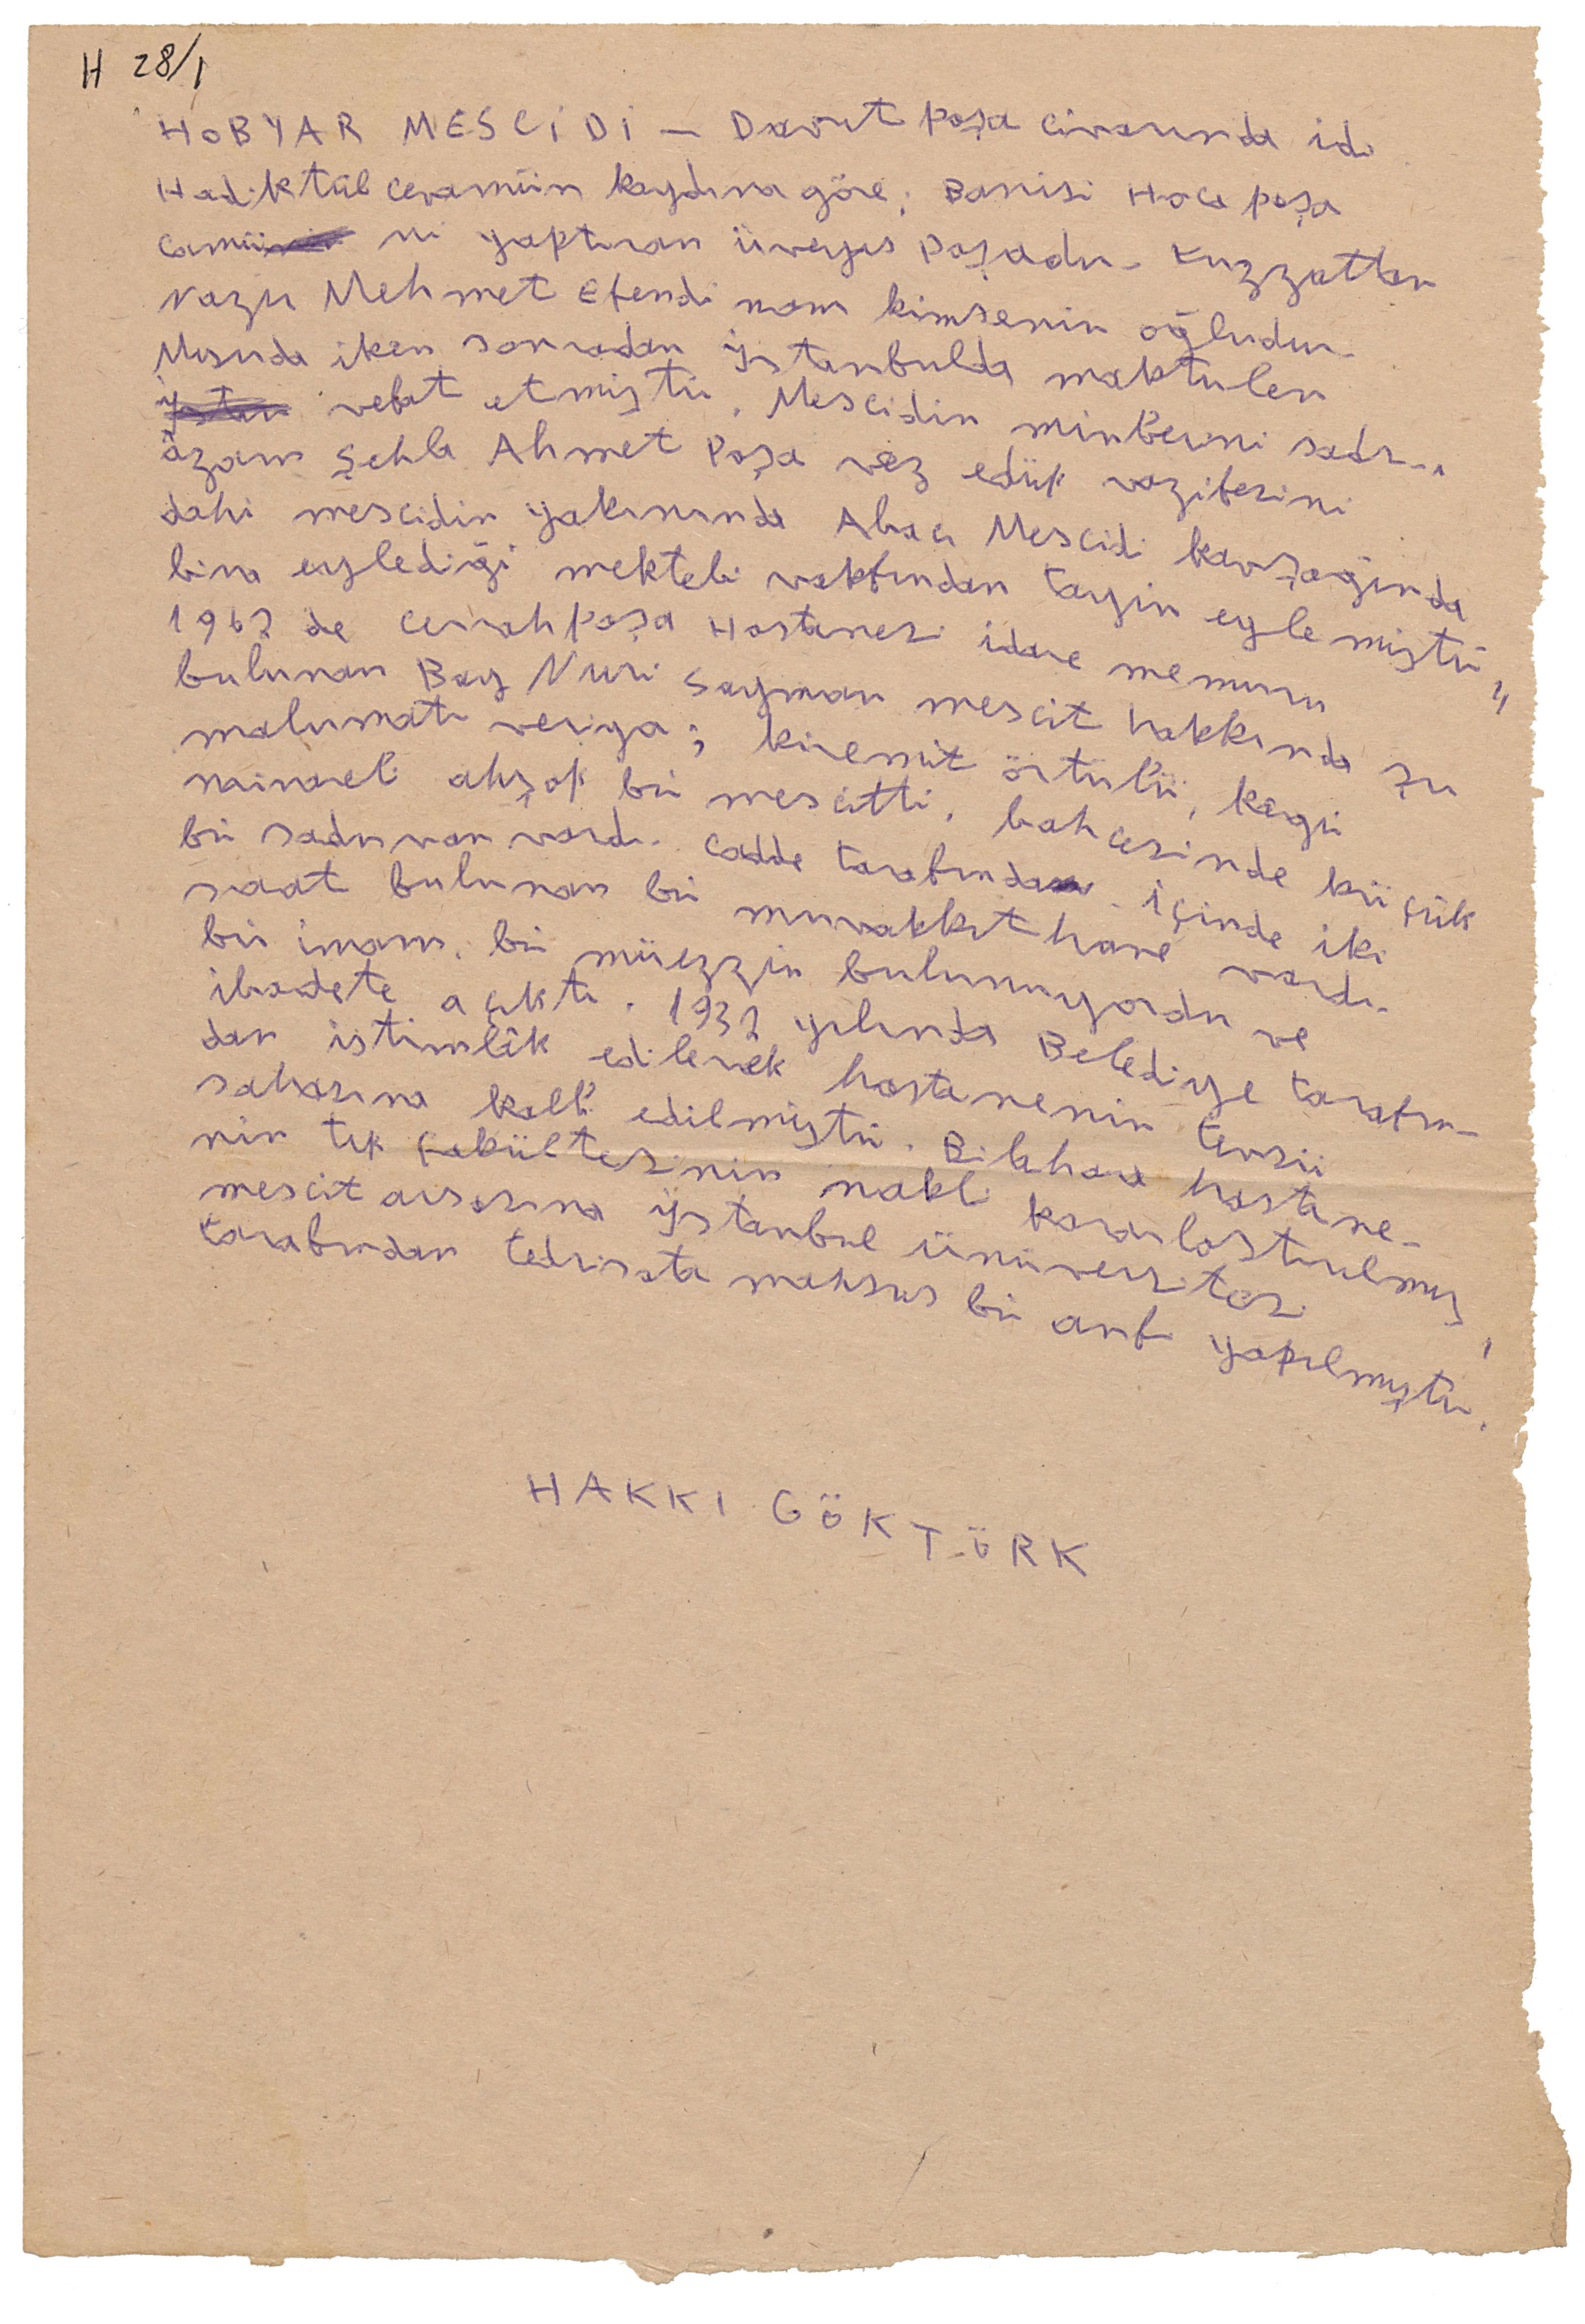 H 28/1
HOBYAR MESCİDİ — Davut paşa civarında idi
Hadiktül cevamiin kaydına göre; Banisi Hoca paşa
camii ni yaptıran üveys paşadır. Kuzzattan
Nazır Mehmet Efendi nam kimsenin oğludur.
Mısırda iken sonradan İstanbulda maktulen
vefat etmiştir. Mescidin minberini sadr-ı
âzam Şehla Ahmet Paşa vez edüp vazifesini
dahi mescidin yakınında Abacı Mescidi kavşağında
bina eylediği mektebi vakfından tayin eylemiştir"
196? de Cerrahpaşa Hastanesi idare memuru
bulunan Bay Nuri Sayman mescit hakkında şu
malumatı veriyor; kiremit örtülü, kagir
minareli ahşap bir mescitti, bahçesinde küçük
bir sadırvan vardı. Cadde tarafında içinde iki
saat bulunan bir muvakkithane vardı.
bir imam, bir müezzin bulunuyordu ve
ibadete açıktı. 193? yılında Belediye tarafın-
dan istimlâk edilerek hastanenin tevsii
sahasına kalb edilmiştir. Bilahare hastane-
nin tıp fakültesinin nakli kararlaştırılmış,
mescit arsasına İstanbul üniversitesi
tarafından tedrisata mahsus bir anfi yapılmıştır.
HAKKI GÖKTÜRK